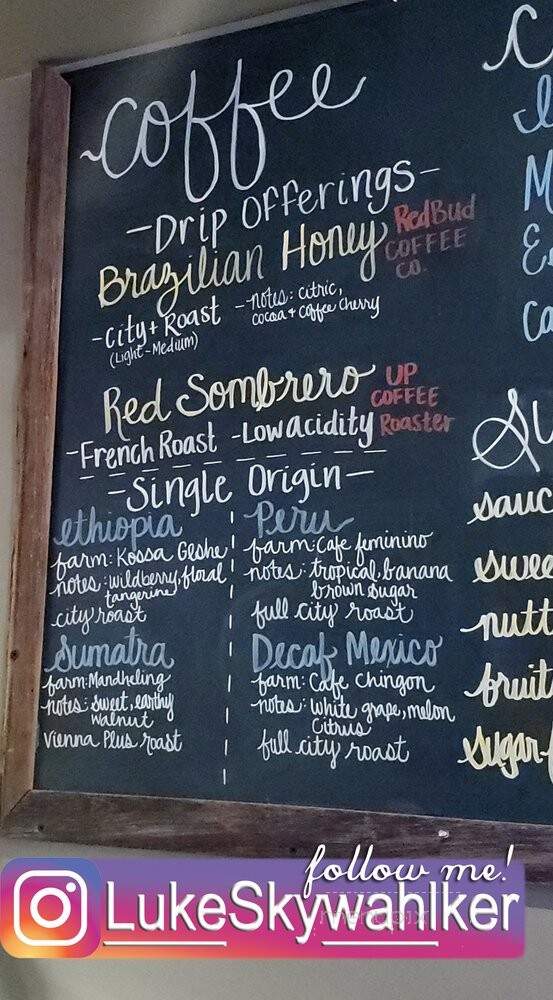 Coffee
-Drip Offerings-
Brazilian Honey
RedBud
COFFEE
CO.
-City+ Roast
(Light-Medium)
-notes: citric,
cocoa + coffee cherry
Red Sombrero
UP
COFFEE
Roaster
-French Roast -Low acidity
-Single Origin-
ethiopia
farm: Kossa Geshe
notes: wildberry, floral
tangerine
city roast
Peru
farm: Cafe feminino
notes: tropical, banana
brown sugar
full city roast
Sumatra
farm: Mandheling
notes: sweet, earthy
walnut
Vienna Plus roast
Decaf Mexico
farm: Cafe Chingon
notes: white grape, melon
Citrus
full city roast
sauc
swee
nutt
fruit
sugar-f
follow me!
LukeSkywahlker